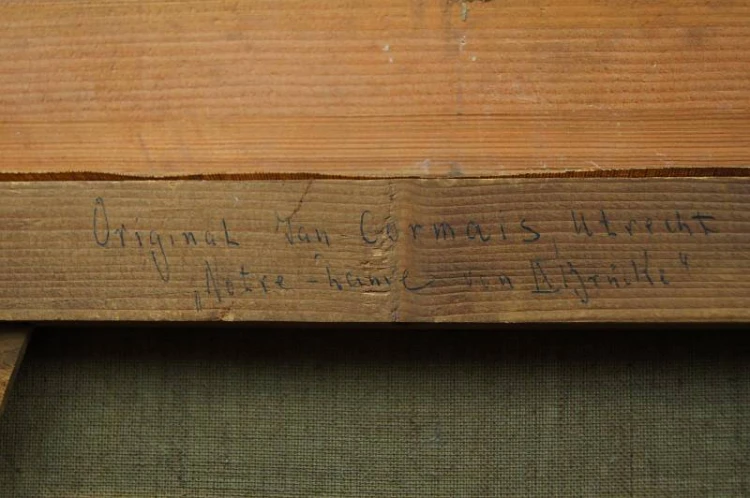 Original Van Cormais, Utrecht
„Notre-Dame von